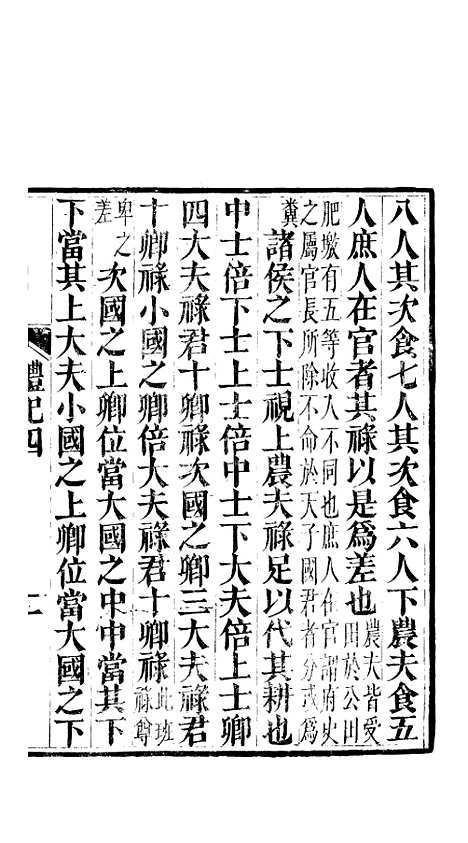 八人其次食七人其次食六人下農夫食五
人庶人在官者其祿以是爲差也農夫皆受田於公田
肥墽有五等收入不同也庶人在官謂府史之屬官長所除不命於天子國君者分或爲
糞諸侯之下士視上農夫祿足以代其耕也
中士倍下士上士倍中士下大夫倍上士卿
四大夫祿君十卿祿次國之卿三大夫祿君
十卿祿小國之卿倍大夫祿君十卿祿此班祿尊
卑之差次國之上卿位當大國之中中當其下
下當其上大夫小國之上卿位當大國之下
禮記四
二